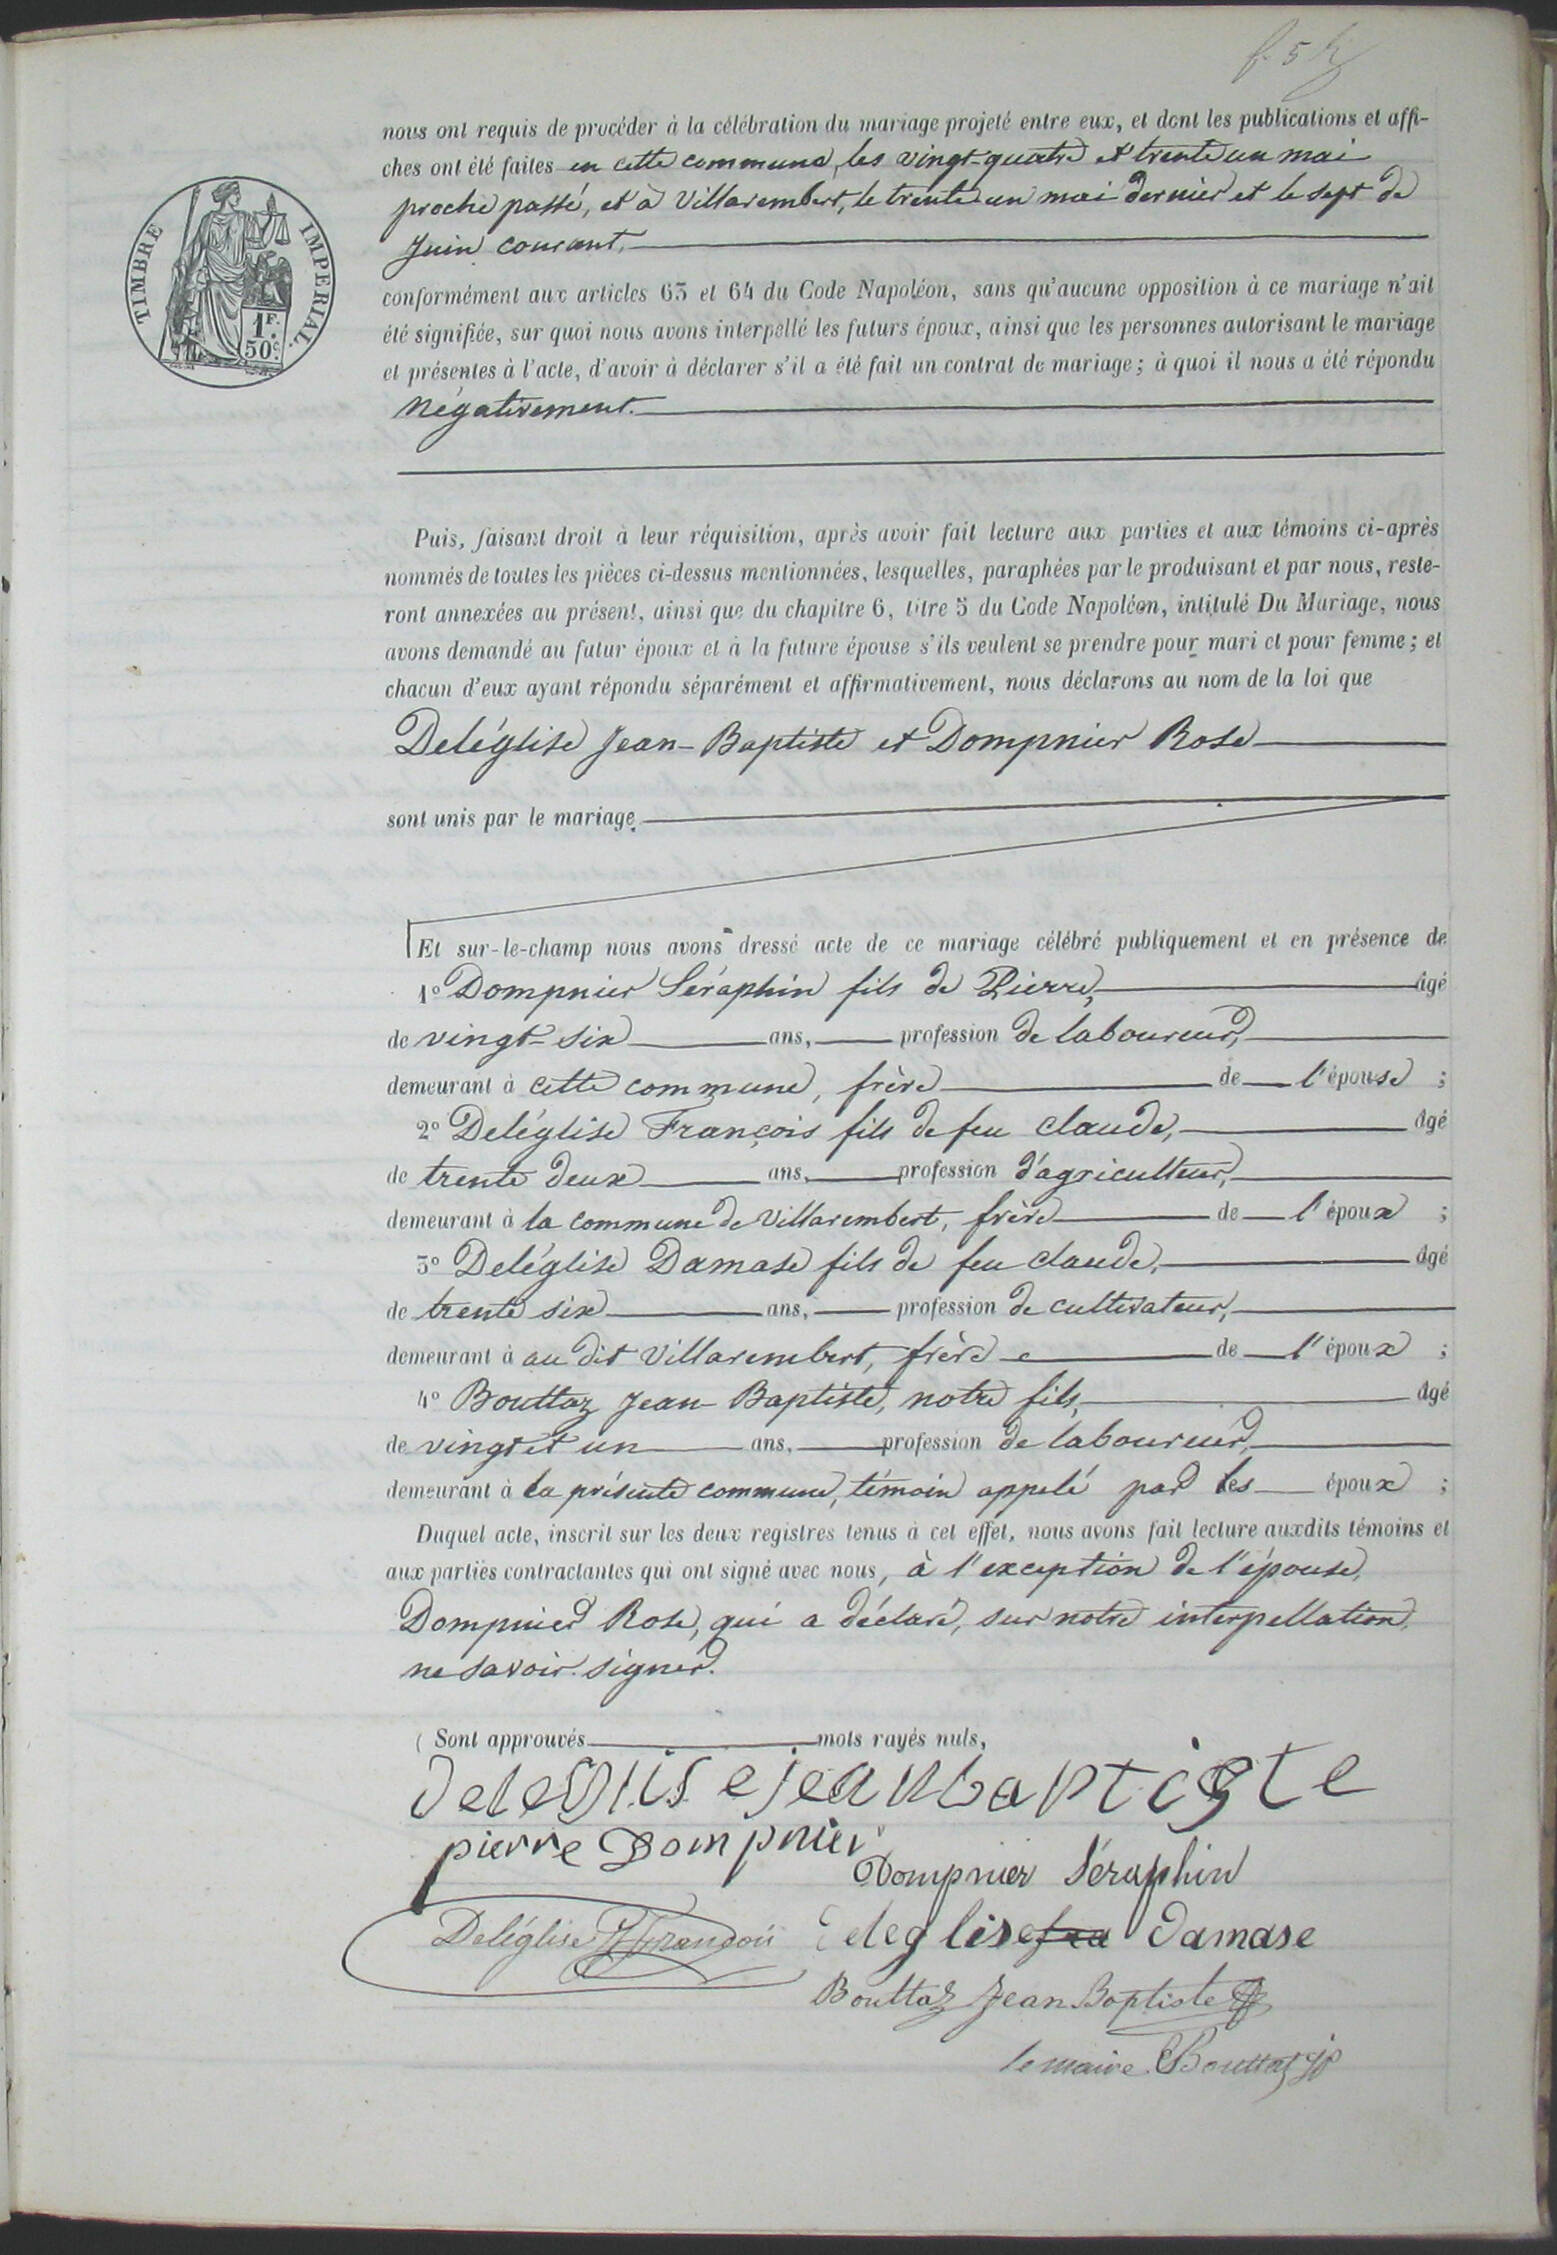 f. 5
nous ont requis de procéder à la célébration du mariage projeté entre eux, et dont les publications et affi-
ches ont été faites en cette commune, les vingt-quatre et trente un mai
proche passé, et à Villarembert, le trente un mai dernier et le sept de
Juin courant.
TIMBRE IMPERIAL.
1F.
50c.
conformément aux articles 63 et 64 du Code Napoléon, sans qu'aucune opposition à ce mariage n'ait
été signifiée, sur quoi nous avons interpellé les futurs époux, ainsi que les personnes autorisant le mariage
et présentes à l'acte, d'avoir à déclarer s'il a été fait un contrat de mariage; à quoi il nous a été répondu
négativement.
Puis, faisant droit à leur réquisition, après avoir fait lecture aux parties et aux témoins ci-après
nommés de toutes les pièces ci-dessus mentionnées, lesquelles, paraphées par le produisant et par nous, reste-
ront annexées au présent, ainsi que du chapitre 6, titre 5 du Code Napoléon, intitulé Du Mariage, nous
avons demandé au futur époux et à la future épouse s'ils veulent se prendre pour mari et pour femme; et
chacun d'eux ayant répondu séparément et affirmativement, nous déclarons au nom de la loi que
Deléglise Jean-Baptiste et Dompnier Rose
sont unis par le mariage.
Et sur-le-champ nous avons dressé acte de ce mariage célébré publiquement et en présence de
1º Dompnier Séraphin fils de Pierre, âgé
de vingt-six ans, profession de laboureur,
demeurant à cette commune, frère de l'épouse ;
2º Deléglise François fils de feu Claude, âgé
de trente deux ans, profession d'agriculteur,
demeurant à la commune de Villarembert, frère de l'époux ;
3º Deléglise Damase fils de feu Claude, âgé
de trente six ans, profession de cultivateur,
demeurant à au dit Villarembert, frère de l'époux ;
4º Bouttaz Jean-Baptiste, notre fils, âgé
de vingt et un ans, profession de laboureur,
demeurant à la présente commune, témoin appelé par les époux ;
Duquel acte, inscrit sur les deux registres tenus à cet effet, nous avons fait lecture auxdits témoins et
aux parties contractantes qui ont signé avec nous, à l'exception de l'épouse,
Dompnier Rose, qui a déclaré, sur notre interpellation,
ne savoir signer.
( Sont approuvés mots rayés nuls,
deleglise jean baptiste
pierre Dompnier
Dompnier Séraphin
Deléglise François
deleglise feu Damase
Bouttaz Jean Baptiste
le maire Bouttaz jp